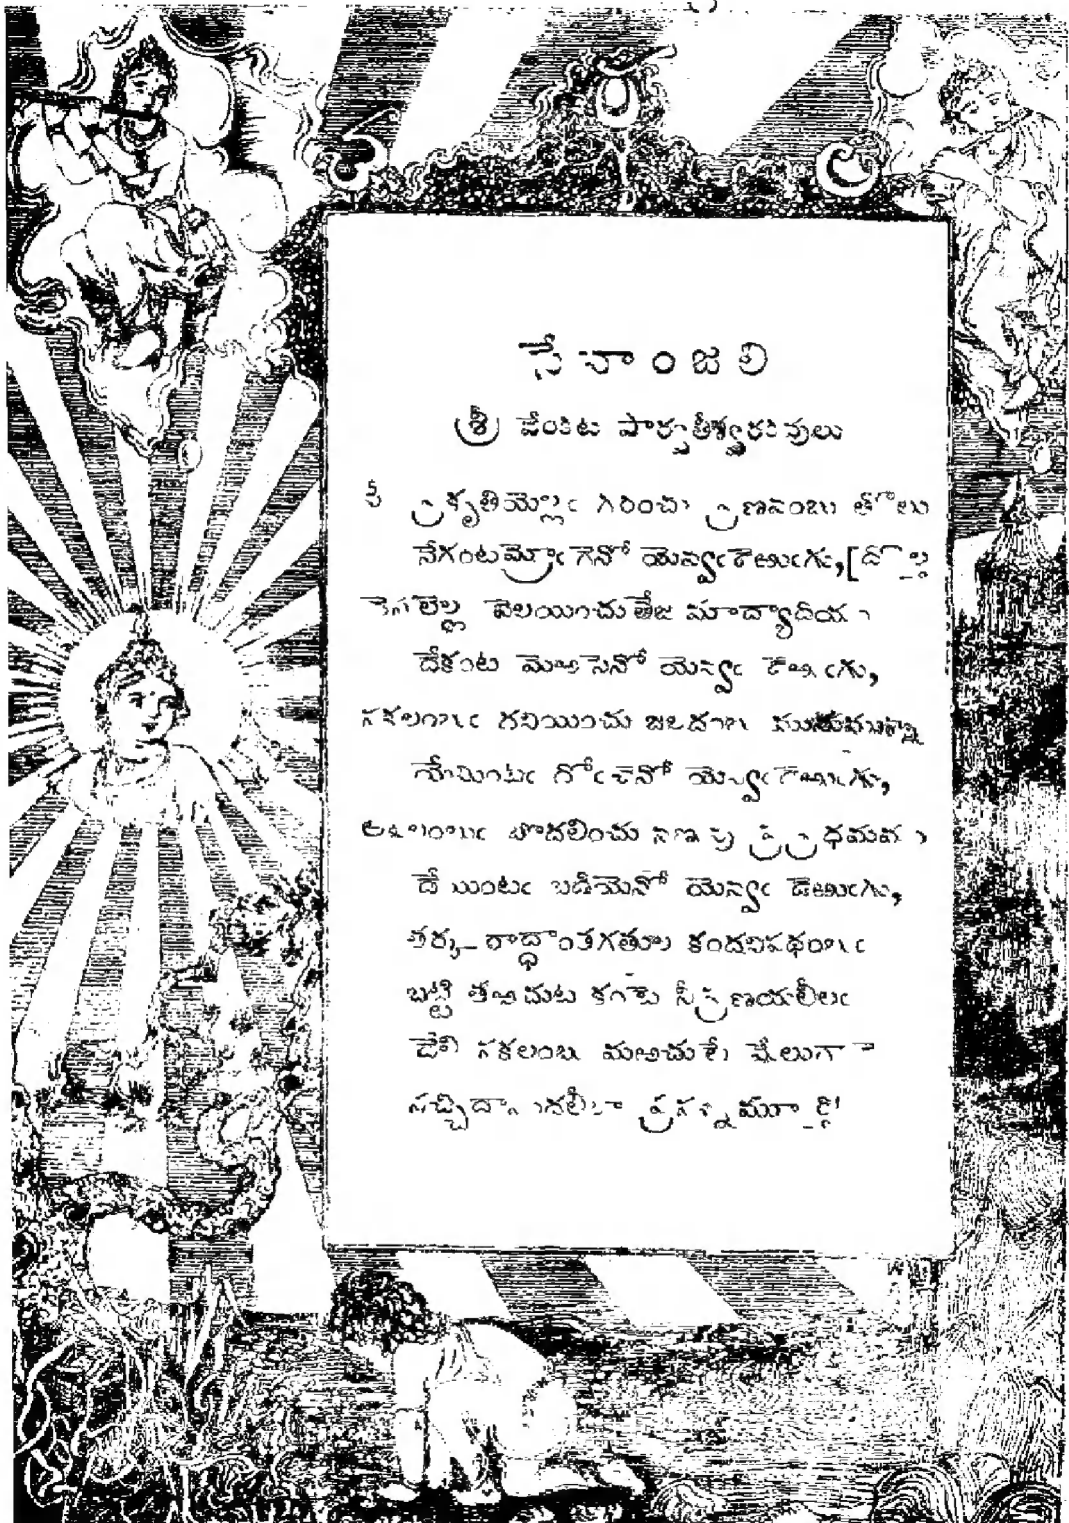 సేవాంజలి
శ్రీ వేంకట పార్వతీశ్వరకవులు
సీ ప్రకృతియెల్లఁ గిరించు ప్రణవంబు తొలు
నేగంటమ్రోఁగెనో యెవ్వఁడెఱుఁగు,[దొల్త
దెసలెల్ల వెలయించుతేజ మాద్యాదియ
దేకంట మెఱసెనో యెవ్వఁ డెఱుఁగు,
సకలంబుఁ జనియించు ముదుమున్నా
యేమింటఁ దోఁచెనో యెవ్వఁడెఱుఁగు,
అఖిలంబుఁ బొదలించు ప్రథమమ
దే యింటఁ బడియెనో యెవ్వఁ డెఱుఁగు,
తర్క రాద్ధాంతగతుల కందనిపథంబుఁ
బట్టి తఱచుట ప్రణయలీలఁ
జేసి సకలంబు మఱచుటే మేలుగా
సచ్చిదానందలీలా ప్రసన్నమూర్తీ!